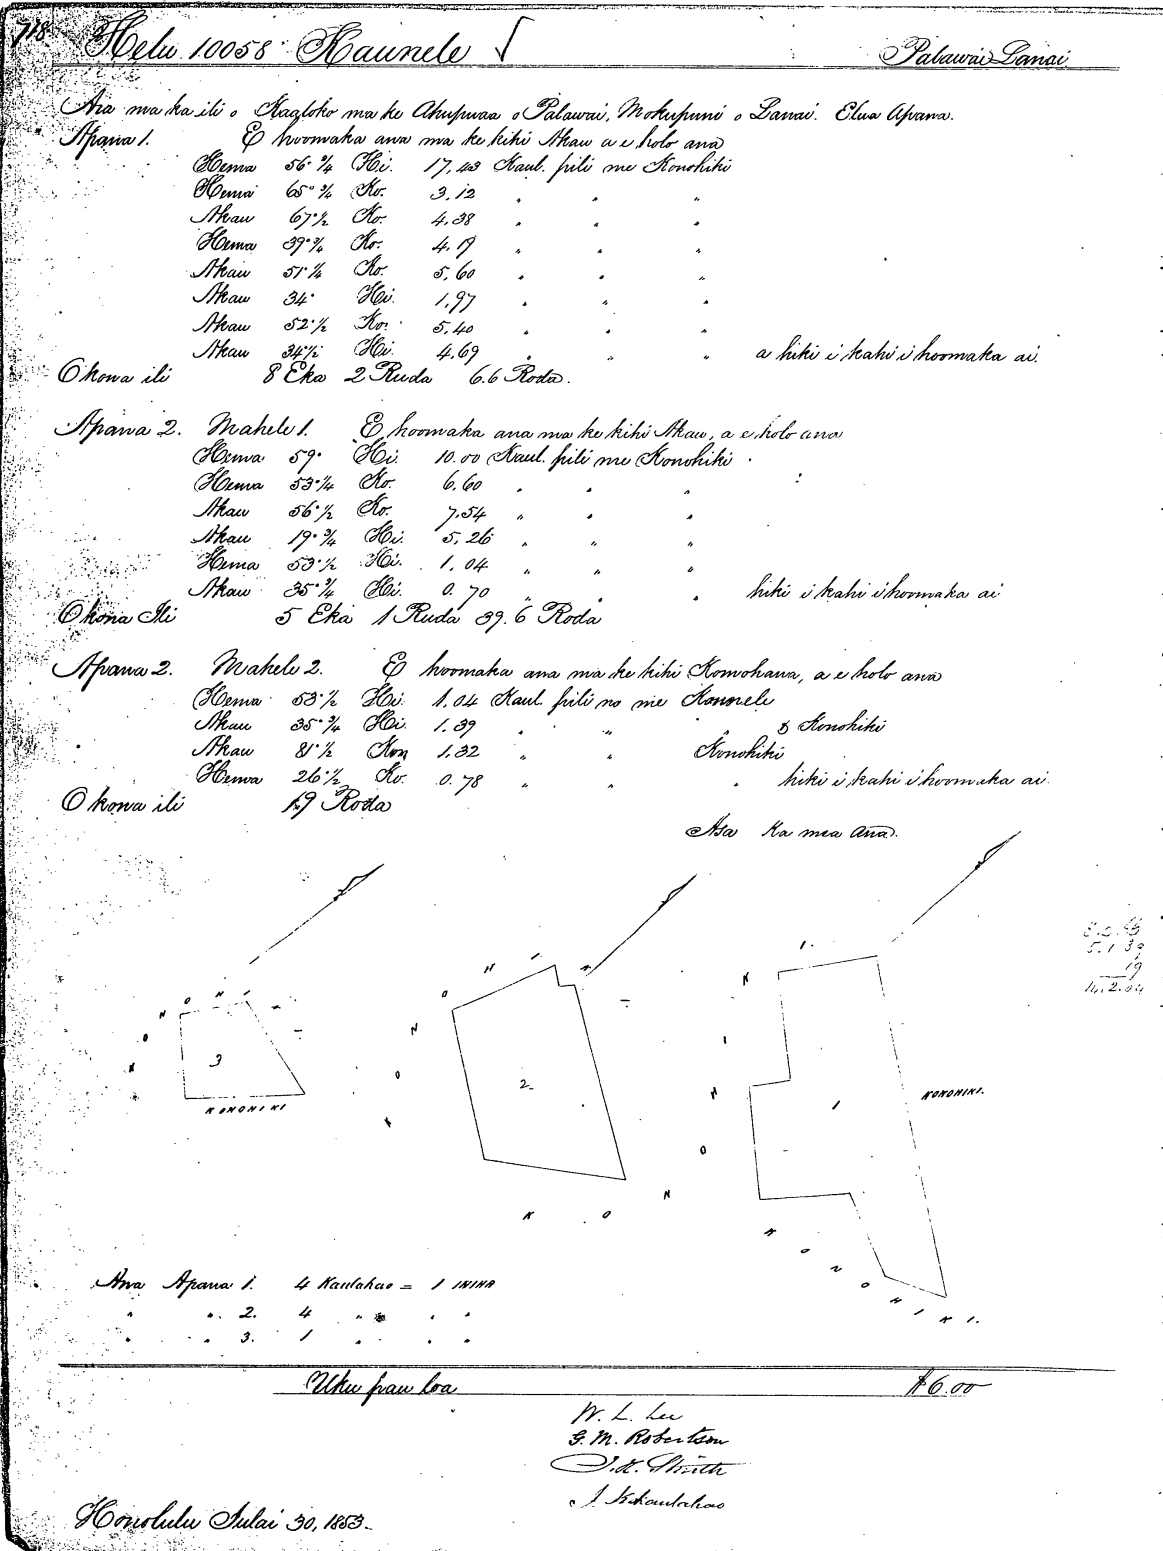 718
Helu 10058 Kaunele
Palawai Lanai
Aia ma ka ili o ma ke Ahupuaa o Palawai, Mokupuni o Lanai. Elua Apana.
Apana 1. E hoomaka ana ma ke kihi Akau a e holo ana
Hema 56° 3/4 Hi. 17,43 Kaul. pili me Konohiki
Hema 65° 3/4 Ko. 3,12 " " "
Akau 67° 1/2 Ko. 4,38 " " "
Hema 39° 3/4 Ko. 4,19 " " "
Akau 51° 1/4 Ko. 5,60 " " "
Akau 34° Hi. 1,97 " " "
Akau 52° 1/2 Ko. 5,40 " " "
Akau 34° 1/2 Hi. 4,69 " " " a hiki i kahi i hoomaka ai.
Okona ili 8 Eka 2 Ruda 6.6 Roda.
Apana 2. Mahele 1. E hoomaka ana ma ke kihi Akau, a e holo ana
Hema 59° Hi. 10.00 Kaul. pili me Konohiki
Hema 53° 1/4 Ko. 6.60 " " "
Akau 56° 1/2 Ko. 7.54 " " "
Akau 19° 3/4 Hi. 5,26 " " "
Hema 53° 1/2 Hi. 1,04 " " "
Akau 35° 3/4 Hi. 0.70 " " " hiki i kahi i hoomaka ai
Okona Ili 5 Eka 1 Ruda 39.6 Roda
Apana 2. Mahele 2. E hoomaka ana ma ke kihi Komohana, a e holo ana
Hema 53° 1/2 Hi. 1,04 Kaul. pili no me Kaunele
Akau 35° 3/4 Hi. 1.39 " " " & Konohiki
Akau 81° 1/2 Kom 1.32 " " Konohiki
Hema 26° 1/2 Ko. 0.78 " " " hiki i kahi i hoomaka ai.
Okona ili 19 Roda
Asa Ka mea ana.
KONOHIKI
3
KONOHIKI
KONOHIKI
2.
KONOHIKI
1
KONOHIKI.
KONOHIKI.
5.1.39
19
14.2.04
Ana Apana 1. 4 Kaulahao = 1 ININA
" " 2. 4 " " " "
" " 3. 1 " " "
Uku pau loa $6.00
W. L. Lee
G. M. Robertson
J. H. Smith
J. Kekaulahao
Honolulu Iulai 30, 1853.